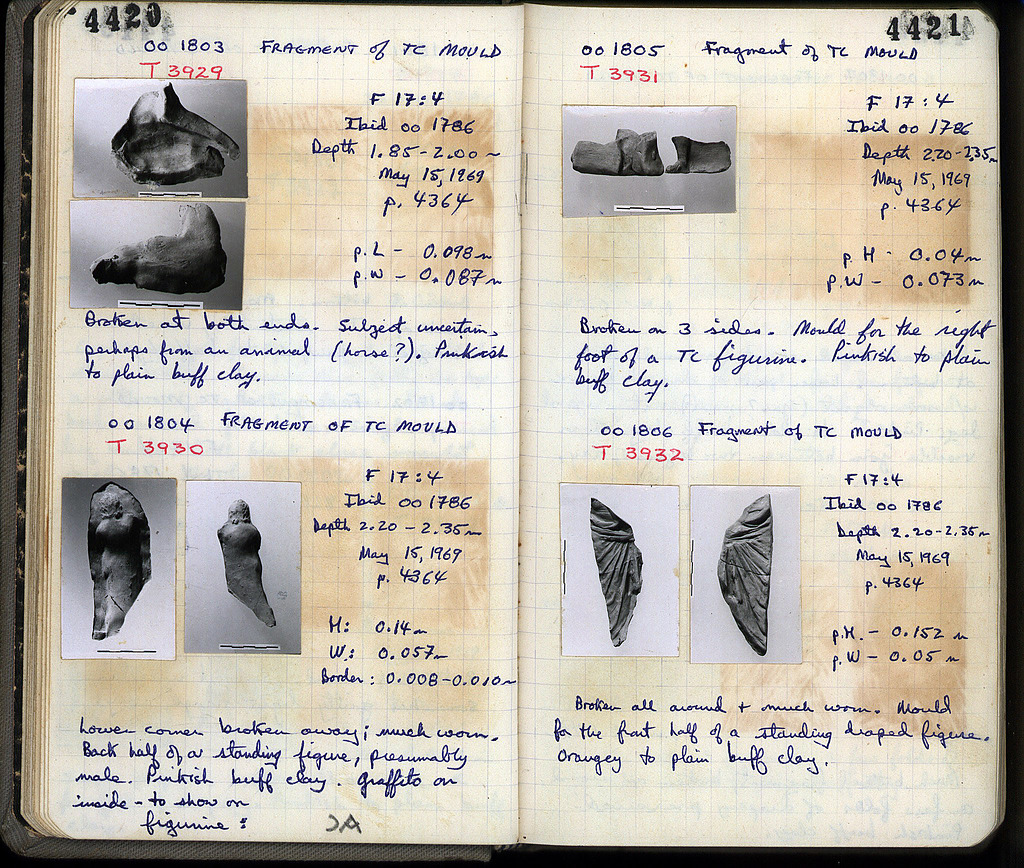 4420
00 1803 FRAGMENT of TC MOULD
T 3929
F 17:4
Ibid 00 1786
Depth 1.85-2.00 m
May 15, 1969
p. 4364
p.L - 0.098 m
p.W - 0.087 m
Broken at both ends. Subject uncertain,
perhaps from an animal (horse?). Pinkish
to plain buff clay.
00 1804 FRAGMENT OF TC MOULD
T 3930
F 17:4
Ibid 00 1786
Depth 2.20 - 2.35 m
May 15, 1969
p. 4364
H: 0.14 m
W: 0.057 m
Border: 0.008-0.010 m
Lower corner broken away; much worn.
Back half of a standing figure, presumably
male. Pinkish buff clay. Graffito on
inside - to show on
figurine:
4421
00 1805 Fragment of TC MOULD
T 3931
F 17:4
Ibid 00 1786
Depth 2.20-2.35 m
May 15, 1969
p. 4364
p.H - 0.04 m
p.W - 0.073 m
Broken on 3 sides. Mould for the right
foot of a TC figurine. Pinkish to plain
buff clay.
00 1806 Fragment of TC MOULD
T 3932
F 17:4
Ibid 00 1786
Depth 2.20-2.35 m
May 15, 1969
p. 4364
p.H. - 0.152 m
p.W - 0.05 m
Broken all around + much worn. Mould
for the front half of a standing draped figure.
Orangey to plain buff clay.